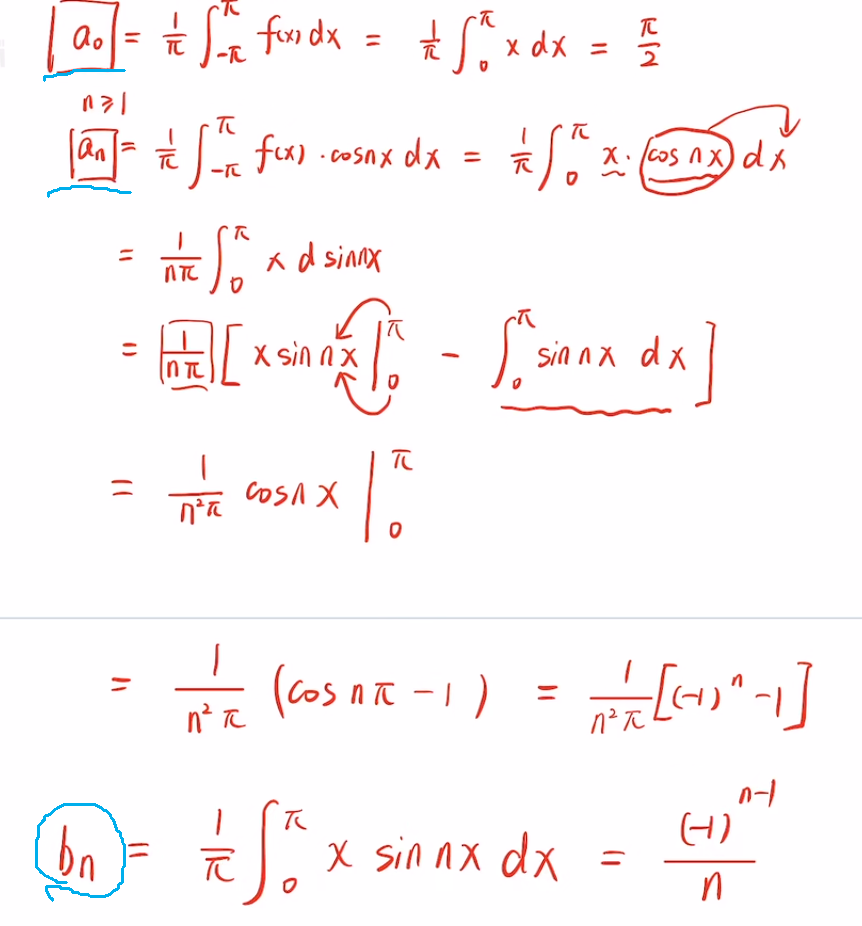 a₀ = 1/π ∫_{-π}^{π} f(x) dx = 1/π ∫_0^π x dx = π/2
n ≥ 1
aₙ = 1/π ∫_{-π}^{π} f(x) · cos nx dx = 1/π ∫_0^π x · cos nx dx
= 1/(nπ) ∫_0^π x d sin nx
= 1/(nπ) [ x sin nx |_0^π - ∫_0^π sin nx dx ]
= 1/(n²π) cos nx |_0^π
= 1/(n²π) (cos nπ - 1) = 1/(n²π) [(-1)ⁿ - 1]
bₙ = 1/π ∫_0^π x sin nx dx = (-1)^{n-1}/n